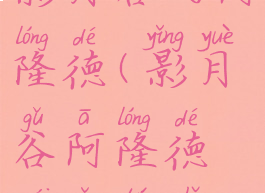 lóng dé yǐng yuè
隆德(影月
gǔ ā lóng dé
谷阿隆德